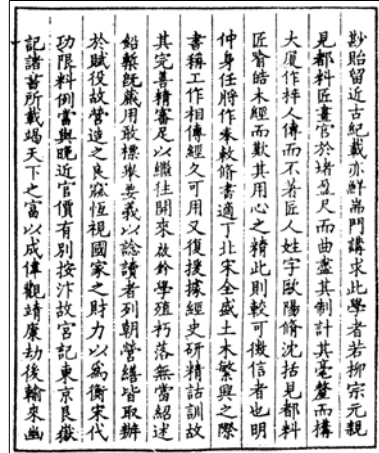 尠貽留近古紀載亦鮮耑門講求此學者若柳宗元親
見都料匠畫宮於堵盈尺而曲盡其制計其毫釐而構
大廈作梓人傳而不著匠人姓字歐陽脩沈括見都料
匠喻皓木經而歎其用心之精此則較可徵信者也明
仲身任將作奉敕修書適丁北宋全盛土木繁興之際
書稱工作相傳經久可用又復援據經史研精詁訓故
其完善精審足以繼往開來啟鈐學殖朽落無當紹述
鉛槧旣蕆用敢標舉要義以諗讀者列朝營繕皆取辦
於賦役故營造之良窳恆視國家之財力以爲衡宋代
功限料例當與晚近官價有別按汴故宮記東京艮嶽
記諸書所載竭天下之富以成偉觀靖康劫後輸來幽